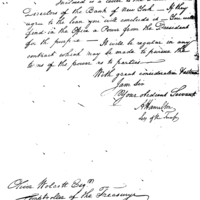 Directors of the Bank of New York — If they
agree to the loan you will conclude it — You will
find in the Office a Power from the President
for the purpose — It will be regular in any
contract which may be made to pursue the
terms of the power as to parties —
With great consideration
I am Sir
Your obedient Servant
A Hamilton
Sec of the Treasy
Oliver Wolcott Esqr
Comptroller of the Treasury